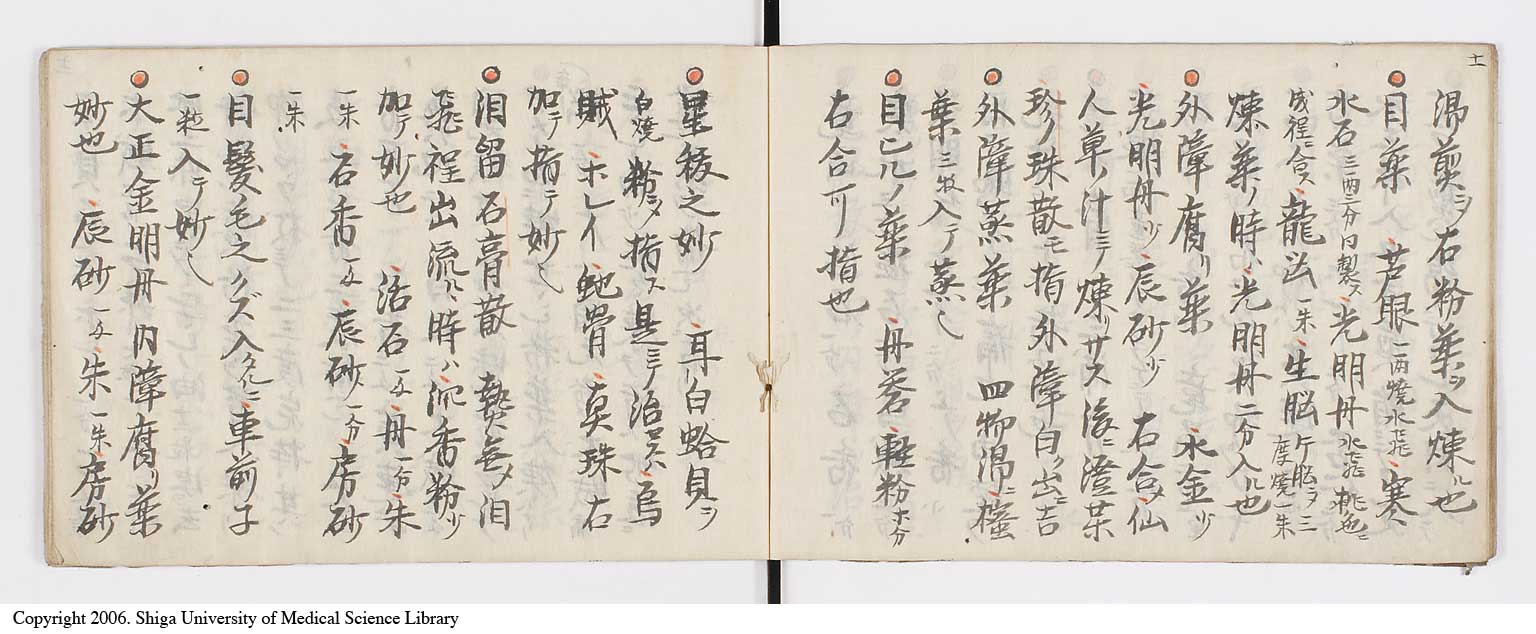 十一
湯煎シ右粉薬ヲ入煉ル也
目薬 芦眼一両焼水飛 寒
水石三両三分日製ス 光明丹水飛桃色ニ
成程ニ合ス 龍 一朱 生脳 午脳ヲ三度焼一朱
煉薬ノ時ハ光明丹二分入ル也
外障腐リ薬 水金少
光明丹少 辰砂少 右合〆仙
人草ノ汁ニテ煉リサス後ニ澄茶
珍ノ珠散モ指外障白ク出ニ吉
外障蒸薬 四物湯ニ
葉三牧入テ蒸シ
目ノ薬 丹 軽粉十分
右合可指也
星 之妙 耳白蛤貝ヲ
白焼粉ニ〆指ス是ニテ治セスハ烏
賊 ホレイ 蛇骨 真珠右
加テ指テ妙シ
泪留石膏散 熱無〆泪
飛程出流ルヽ時ハ沉香粉少
加テ妙也 活石一匁 丹一分 朱
一朱 石香一匁 辰砂一分 房砂
一朱
目髪毛之クズ入タルニ 車前子
一粒入テ妙シ
大正金明丹内障腐リ薬
妙也 辰砂一匁 朱一朱 房砂
Copyright 2006. Shiga University of Medical Science Library